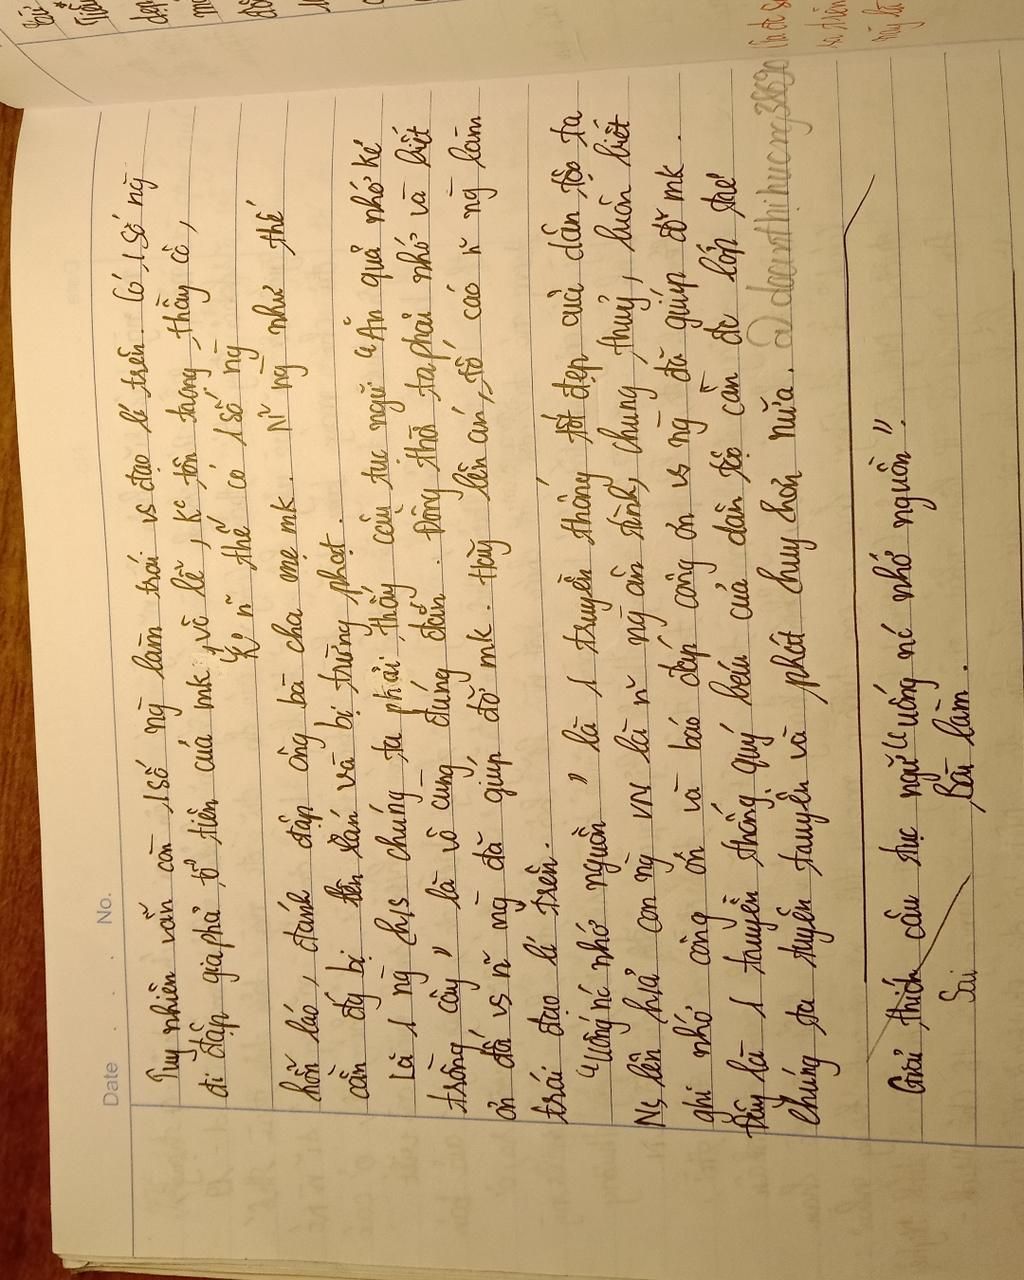 Date No.
Tuy nhiên vẫn còn 1 số ng̀ làm trái vs đạo lí trên. Có 1 số ng̀
đi đập gia phả tổ tiên của mk, vô lễ, ko tôn trọng thầy cô,
Ko n~ thế có 1 số ng̀
hỗn láo, đánh đập ông bà cha mẹ mk. N~ ng̀ như thế
cần đy bị lên án và bị trừng phạt.
Là 1 ng̀ h/s chúng ta phải thấy câu tục ngữ "Ăn quả nhớ kẻ
trồng cây" là vô cùng đúng đắn. Đồng thời ta phải nhớ và biết
ơn đã vs n~ ng̀ đã giúp đỡ mk. Hãy lên án, tố cáo n~ ng̀ làm
trái đạo lí trên.
"Uống nc nhớ nguồn" là 1 truyền thống tốt đẹp của dân tộc ta
lên con ng̀ VN là n~ ng̀ ân tình, chung thuỷ, luôn biết
ghi nhớ công ơn và báo đáp công ơn vs ng̀ đã giúp đỡ mk.
Đây là 1 truyền thống quý báu của dân tộc cần đc lớp thế
chúng ta tuyên truyền và phát huy hơn nữa. @doanthihucmg36690
Giải thích câu tục ngữ "uống nc nhớ nguồn".
Sai Bài làm.